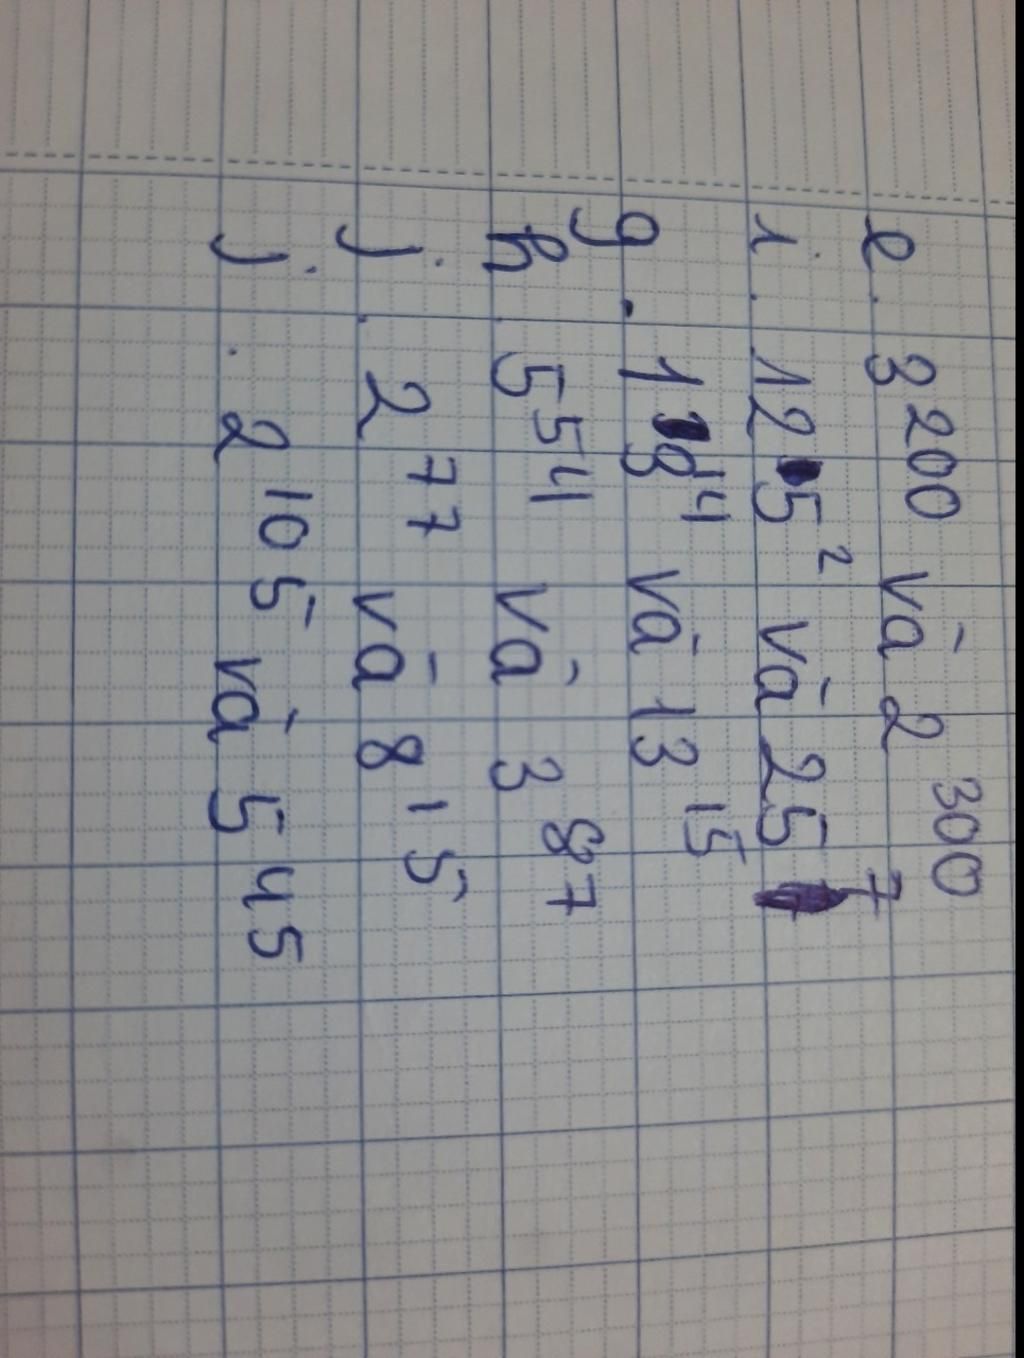 e. 3²⁰⁰ và 2³⁰⁰
i. 125² và 25⁷
g. và 13¹⁵
h. 5⁵⁴ và 3⁸⁷
j. 2⁷⁷ và 8¹⁵
j. 2¹⁰⁵ và 5⁴⁵